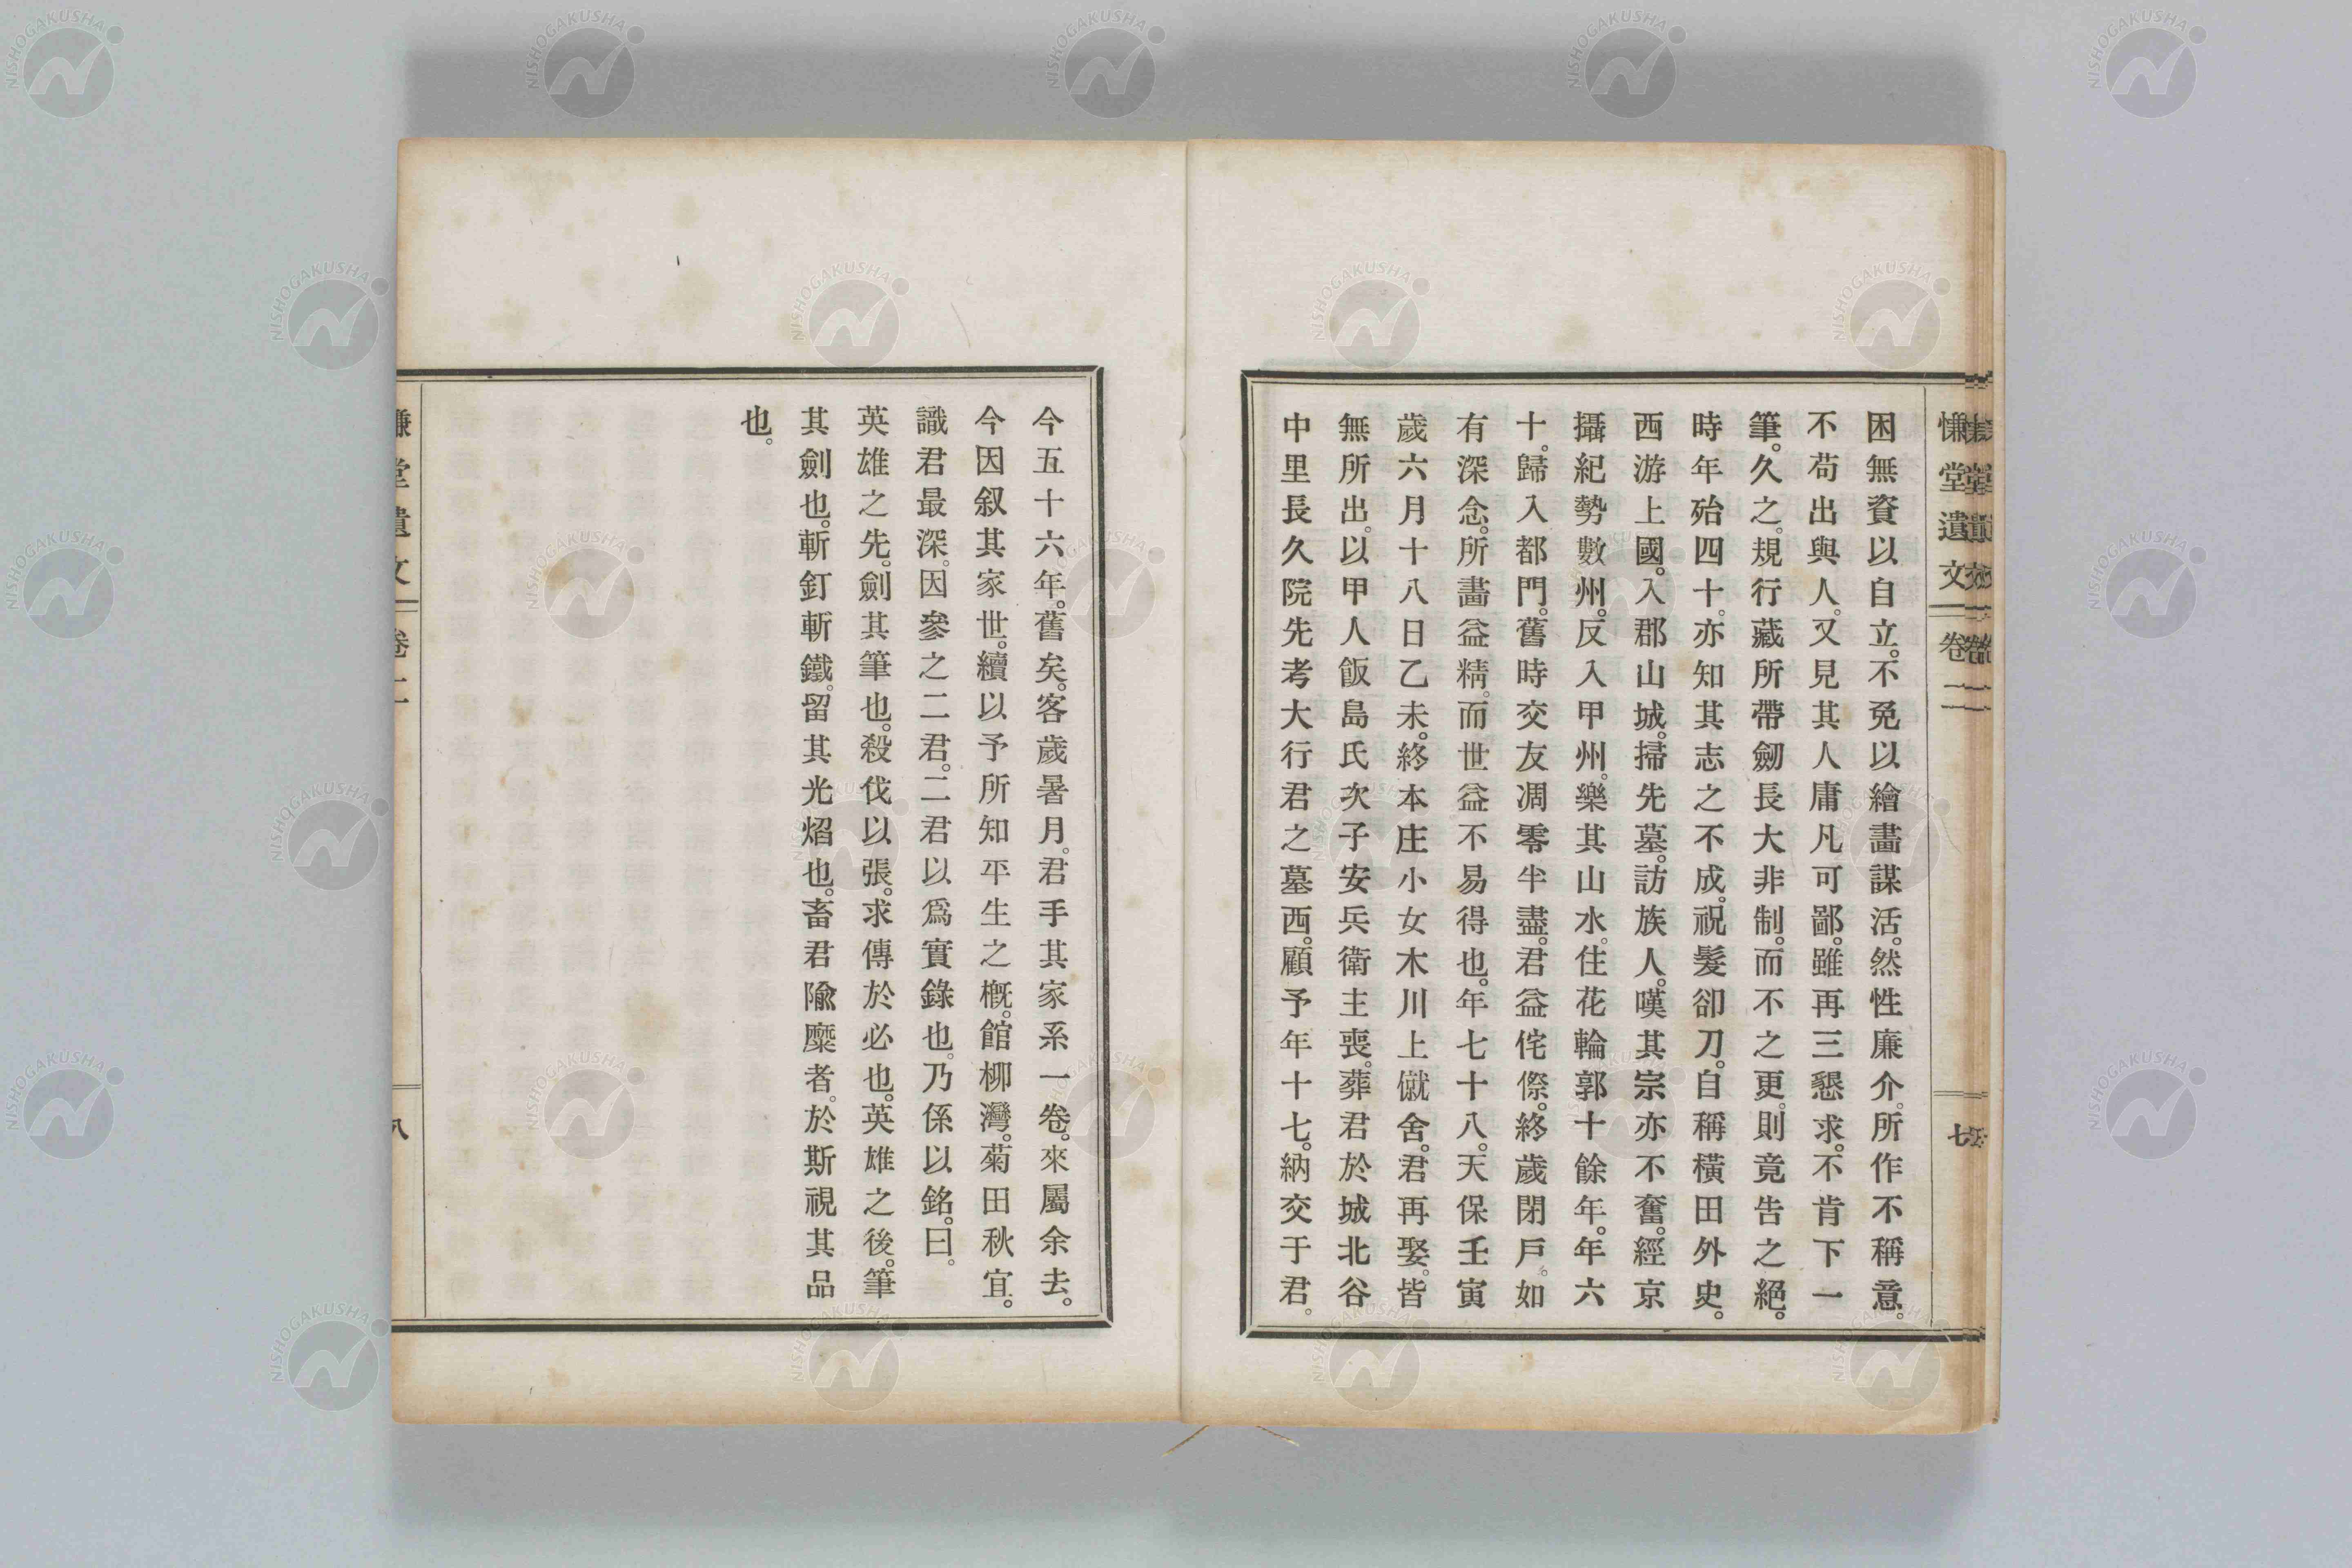 慊堂遺文 卷二 七
困無資以自立。不免以繪畵謀活。然性廉介。所作不稱意。
不苟出與人。又見其人庸凡可鄙。雖再三懇求。不肯下一
筆。久之。規行藏所帶劒長大非制。而不之更。則竟告之絕。
時年殆四十。亦知其志之不成。祝髮卻刀。自稱橫田外史。
西游上國。入郡山城。掃先墓。訪族人。嘆其宗亦不奮。經京
攝紀勢數州。反入甲州。樂其山水。住花輪郭十餘年。年六
十。歸入都門。舊時交友凋零半盡。君益侘傺。終歲閉戶。如
有深念。所畵益精。而世益不易得也。年七十八。天保壬寅
歲六月十八日乙未。終本庄小女木川上僦舍。君再娶。皆
無所出。以甲人飯島氏次子安兵衛主喪。葬君於城北谷
中里長久院先考大行君之墓西。顧予年十七。納交于君。
今五十六年。舊矣。客歲暑月。君手其家系一卷。來屬余去。
今因叙其家世。續以予所知平生之槪。館柳灣。菊田秋宜。
識君最深。因參之二君。二君以爲實錄也。乃係以銘。曰。
英雄之先。劍其筆也。殺伐以張。求傳於必也。英雄之後。筆
其劍也。斬釘斬鐵。留其光焰也。畜君隃糜者。於斯視其品
也。
慊堂遺文 卷二 八
NISHOGAKUSHA